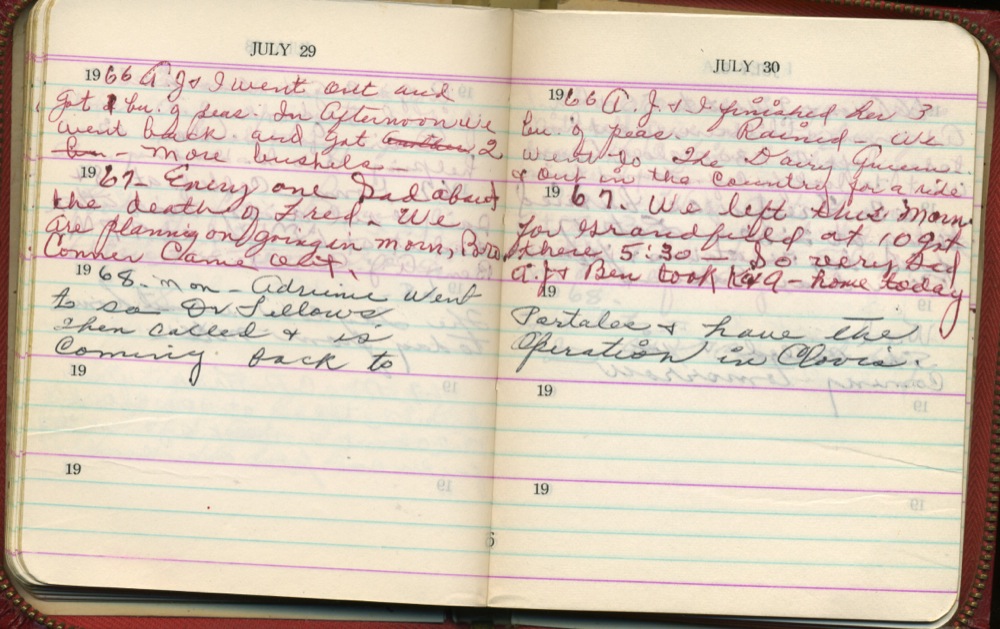 JULY 29
1966 A.J. & I went out and
got 1 bu. of peas. In Afternoon we
went back and got another 2
bu - more bushels -
1967 - Every one sad about
the death of Fred. We
are planning on going in morn,
Conner Came out.
1968. mon - Adriene Went
to Dr Fellows
then called & is
Coming back to
19
19
JULY 30
1966 A.J. & I finished her 3
bu. of peas. Rained - We
went to The Dairy Queen
& out in the country for a ride
1967. We left this Morn
for Grandfield at 10 got
there 5:30 - So very Sad
A.J & Ben took - home today
19
Portales & have the
Operation in Clovis.
19
19
6